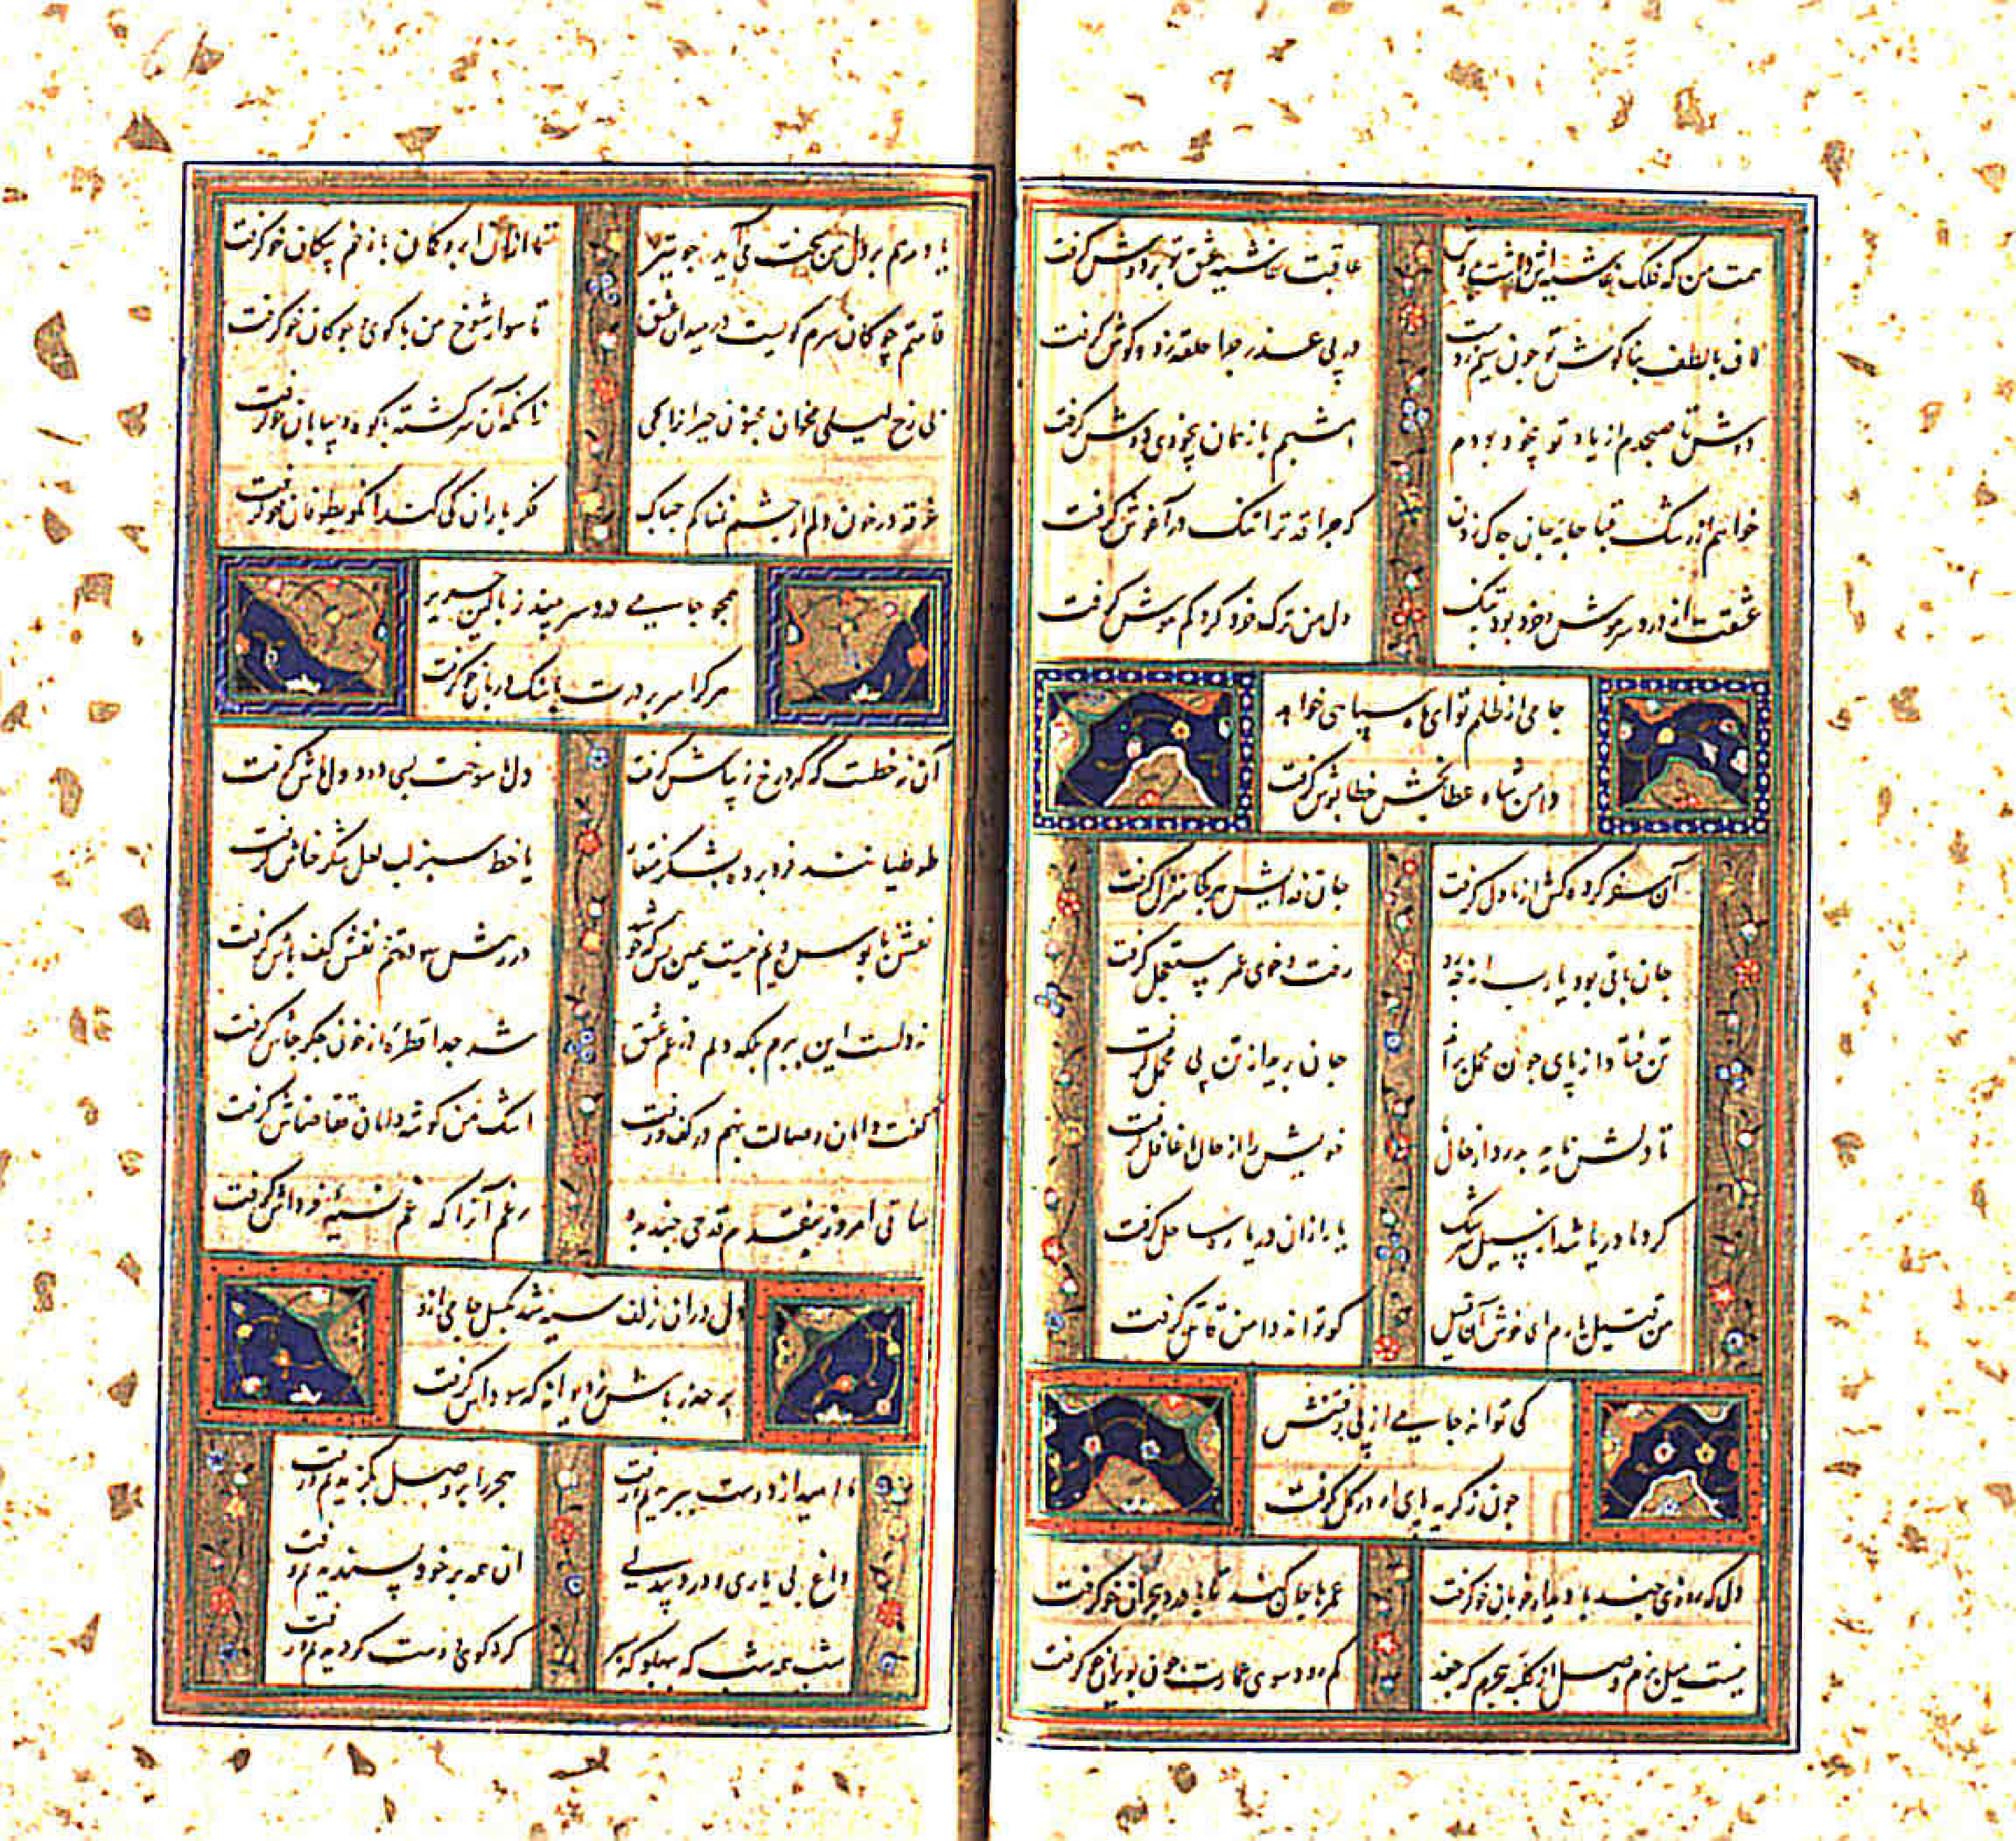 همت من که فلک غاشیه اش داشت بدوش عاقبت غاشیه عشق تو بر دوش گرفت
لاف با لطف بناکوش تو چون سیم زدست در پی عذر چرا حلقه زد و کوش گرفت
دوش تا صبحدم از یاد تو بیخود بودم امشبم باز همان بیخودی دوش گرفت
خواهم از رشک قبا جامه جان چاک زدن که چرا قد ترا تنک در آغوش گرفت
عشقت از درد سر هوش و خرد بود بتنک دل من ترک خرد کرد کم هوش گرفت
جامی از ظلم تو ای ماه سپاهی خواهد
دامن شاه عطابخش خطاپوش گرفت
آن سفر کرده کش از ما دل گرفت جان فدایش هر کجا منزل گرفت
جان باقی بود یارب از چه رو رفت و خوی عمر مستعجل گرفت
تن فتاد از پای چون محمل براند جان برید از تن پی محمل گرفت
تا دلش ناید بدرد از حال ما خویش را از حال ما غافل گرفت
کرد ما دریا شد از سیل سرشک یار ازان دریا ره ساحل گرفت
من قتیل هجرم ای خوش آن قتیل کو تواند دامن قاتل گرفت
کی تواند جامی از پی رفتنش
چون ز کریه پای او در کل گرفت
دل که روزی چند با دیدار خوبان خو گرفت عمرها جان کند تا با درد هجران خو گرفت
نیست میل بزم وصل از کلبه هجرم که جغد کم رود سوی عمارت چون بویران خو گرفت
یاد مرهم بر دل من سخت می آید چو تیر تا ازان ابرو کمان با زخم پیکان خو گرفت
قامتم چوکان سرم کوییست در میدان عشق تا سوار شوخ من با کوی و چوکان خو گرفت
بی رخ لیلی مخوان مجنون حیران را بحی زانکه آن سرکشته با کوه و بیابان خو گرفت
غرقه در خون دلم از چشم نمناکم چه باک فکر باران کی کند آنکو بطوفان خو گرفت
همچو جامی درد سر بیند ز بالین حریر
هر کرا سر بر درت با سنک دربان خو گرفت
آن نه خطست که کرد رخ زیباش گرفت دلها سوخت بسی دود دلهاش گرفت
طوطیانند فرو برده بشکر منقار یا خط سبز لب لعل شکرخاش گرفت
نقش پابوس ویم نیست همین بس که چو شد در رهش سوده تنم نقش کف پاش گرفت
نه دلست این ببرم بلکه دلم از غم عشق شد جدا قطره از خون جکر جاش گرفت
کفت دامان وصالت نهم در کف و رفت اشک من کوشه دامان تقاضاش گرفت
ساقی امروز بنقدم قدحی چند بده رغم آنرا که غم نسیه فرداش گرفت
دل دران زلف سیه شد بکسل جامی ازو
پر حذر باش ز دیوانه که سوداش گرفت
ما امید از دوست ببریدیم و رفت هجر را بر وصل بکزیدیم و رفت
داغ بی یاری و درد بیدلی آن همه بر خود پسندیدیم و رفت
شب همه شب که بپهلو که بسر کرد کوی دوست کردیدیم و رفت